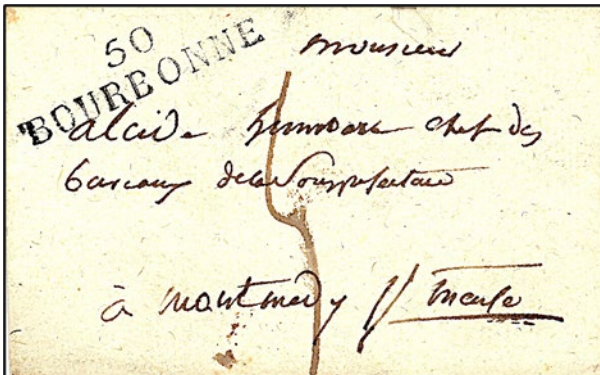 50
BOURBONNE
Monsieur
alcide chef des
bureaux de la Sousprefecture
à Montmedy
Meuse